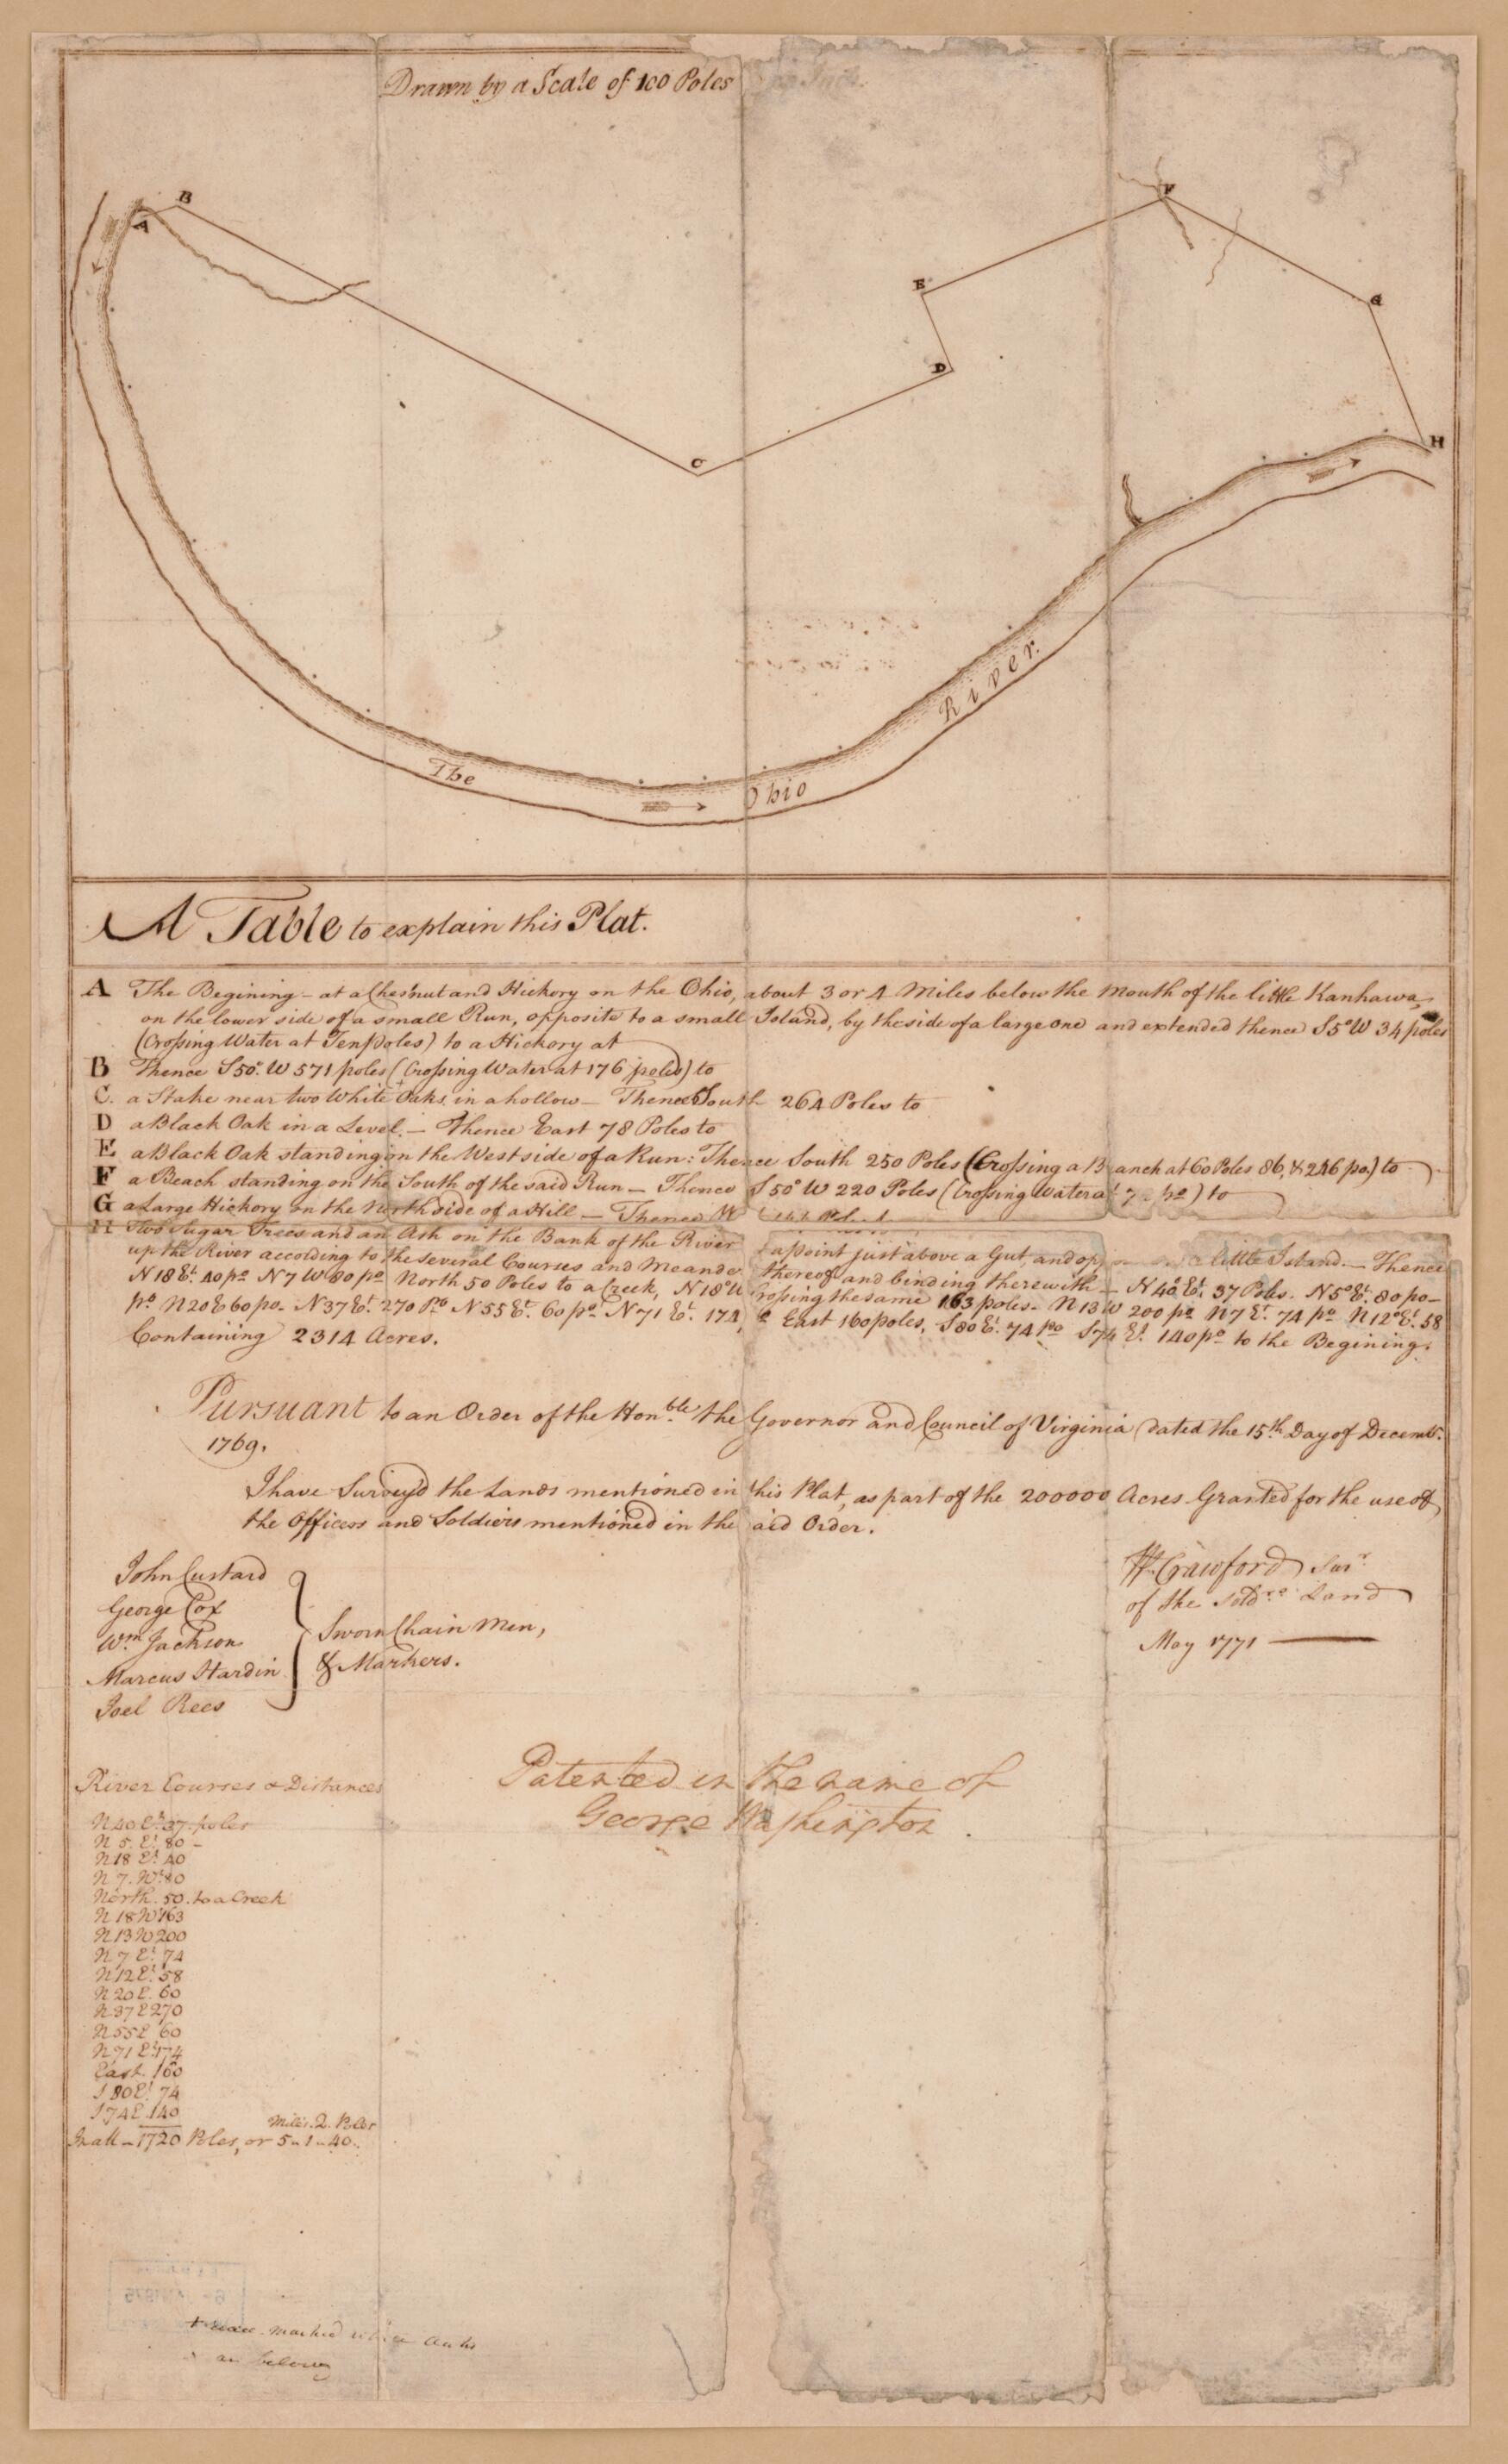 Drawn by a Scale of 100 Poles
B
A
F
E
G
D
C
H
The Ohio River
A Table to explain this Plat.
A The Begining - at a Chesnut and Hickory on the Ohio, about 3 or 4 Miles below the Mouth of the little Kanhawa,
on the lower side of a small Run, opposite to a small Island, by the side of a large one and extended thence S5°W 34 poles
(Crossing Water at Ten poles) to a Hickory at
B Thence S50°. W 571 poles (Crossing Water at 176 poles) to
C. a Stake near two White Oaks in a hollow - Thence South 264 Poles to
D a Black Oak in a Level. - Thence East 78 Poles to
E a Black Oak standing on the West side of a Run: Thence South 250 Poles (Crossing a Branch at 60 Poles 86, & 246 po.) to
F a Beach standing on the South of the said Run - Thence S50°W 220 Poles (Crossing Water at 7 po) to
G a Large Hickory on the North side of a Hill - Thence W
H Two Sugar Trees and an Ash on the Bank of the River a point just above a Gut, and little Island. - Thence
up the River according to the Several Courses and Meander thereof and binding therewith - N40° Et. 37 Poles. N5° Et. 80 po -
N18 Et. 40 po N7 W 80 po North 50 Poles to a Creek, N18°W Crossing the same 163 poles. N13 W 200 po N7 Et. 74 po N12° Et. 58
po N20 E 60 po. N37 Et. 270 Po N55 Et. 60 po N71 Et. 174, East 160 poles, S80 Et. 74 po S74 Et 140 po to the Begining.
Containing 2314 Acres.
Pursuant to an Order of the Honble. the Governor and Council of Virginia dated the 15th Day of Decemr.
1769.
I have Survey'd the Lands mentioned in this Plat, as part of the 200000 Acres Granted for the use of
the Officers and Soldiers mentioned in the aid Order.
W. Crawford Surr.
of the Soldrs. Land
May 1771
John Custard
George Cox
Wm Jackson
Marcus Hardin
Joel Rees
Sworn Chain Men,
& Markers.
Patented in the name of
George Washington.
River Courses & Distances
N40 Et. 37. poles
N 5. Et. 80 -
N18 Et. 40
N 7. Wt. 80
North. 50. to a Creek
N 18 W 163
N13 W 200
N 7 Et. 74
N12 Et. 58
N 20 E. 60
N 37 E 270
N 55 E 60
N 71 Et. 174
East. 160
S 80 Et. 74
S 74 E 140
Miles. Q. Poles
In all - 1720 Poles, or 5 " 1 " 40.
marked